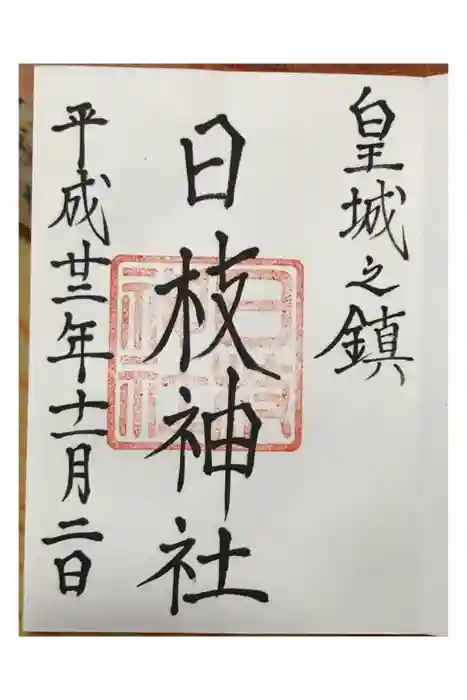 皇城之鎮
日枝神社
平成廿二年十一月二日
日枝
神社